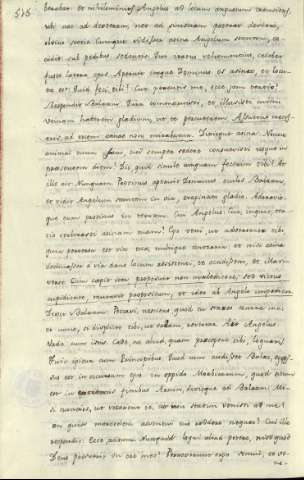 516
et nihilominus Angelus ad locum angustum transiens,
ubi nec ad dexteram nec ad sinistram poterat deviare,
obvius stetit. Cumque vidisset asina Angelum stantem, con
cidit sub pedibus sedentis. Qui iratus vehementius, cædebat
fuste latera ejus. Aperuit Dominus os asinæ, et locu
ta est: Quid feci tibi? Cur percutis me, ecce jam tertio?
Respondit Balaam: Quia commeruisti, et illusisti mihi:
utinam haberem gladium, ut te percuterem.
Dixitque asina: Nonne
animal tuum sum, cui semper sedere consuevisti usque in
præsentem diem? Dic quid simile unquam fecerim tibi? At
ille ait: Nunquam. Protinus aperuit Dominus oculos Balaam,
et vidit Angelum stantem in via, evaginato gladio. Adoravit
que eum pronus in terram. Cui Angelus: Cur, inquit, ter
tio verberas asinam tuam? Ego veni, ut adversarer tibi,
quia perversa est via tua, mihique contraria: et nisi asina
declinasset a via dans locum resistenti, te occidissem, et illa vi
veret.
Dixit Balaam: Peccavi, nesciens quod tu stares contra me:
et nunc, si displicet tibi, ut vadam, revertar. Ait Angelus:
Vade cum istis. Cave, ne aliud, quam præcepero tibi, loquaris.
Ivit igitur cum Principibus. Quod cum audisset Balac, egres
sus est in occursum ejus in oppido Moabitarum, quod situm
est in extremis finibus Arnon, dixitque ad Balaam: Mi
si nuncios, ut vocarem te, cur non statim venisti ad me?
an quia mercedem adventui tuo reddere nequeo? Cui ille
respondit: Ecce adsum: Nunquid loqui aliud potero, nisi quod
Deus posuerit in ore meo? Perrexerunt ergo simul, et ve-